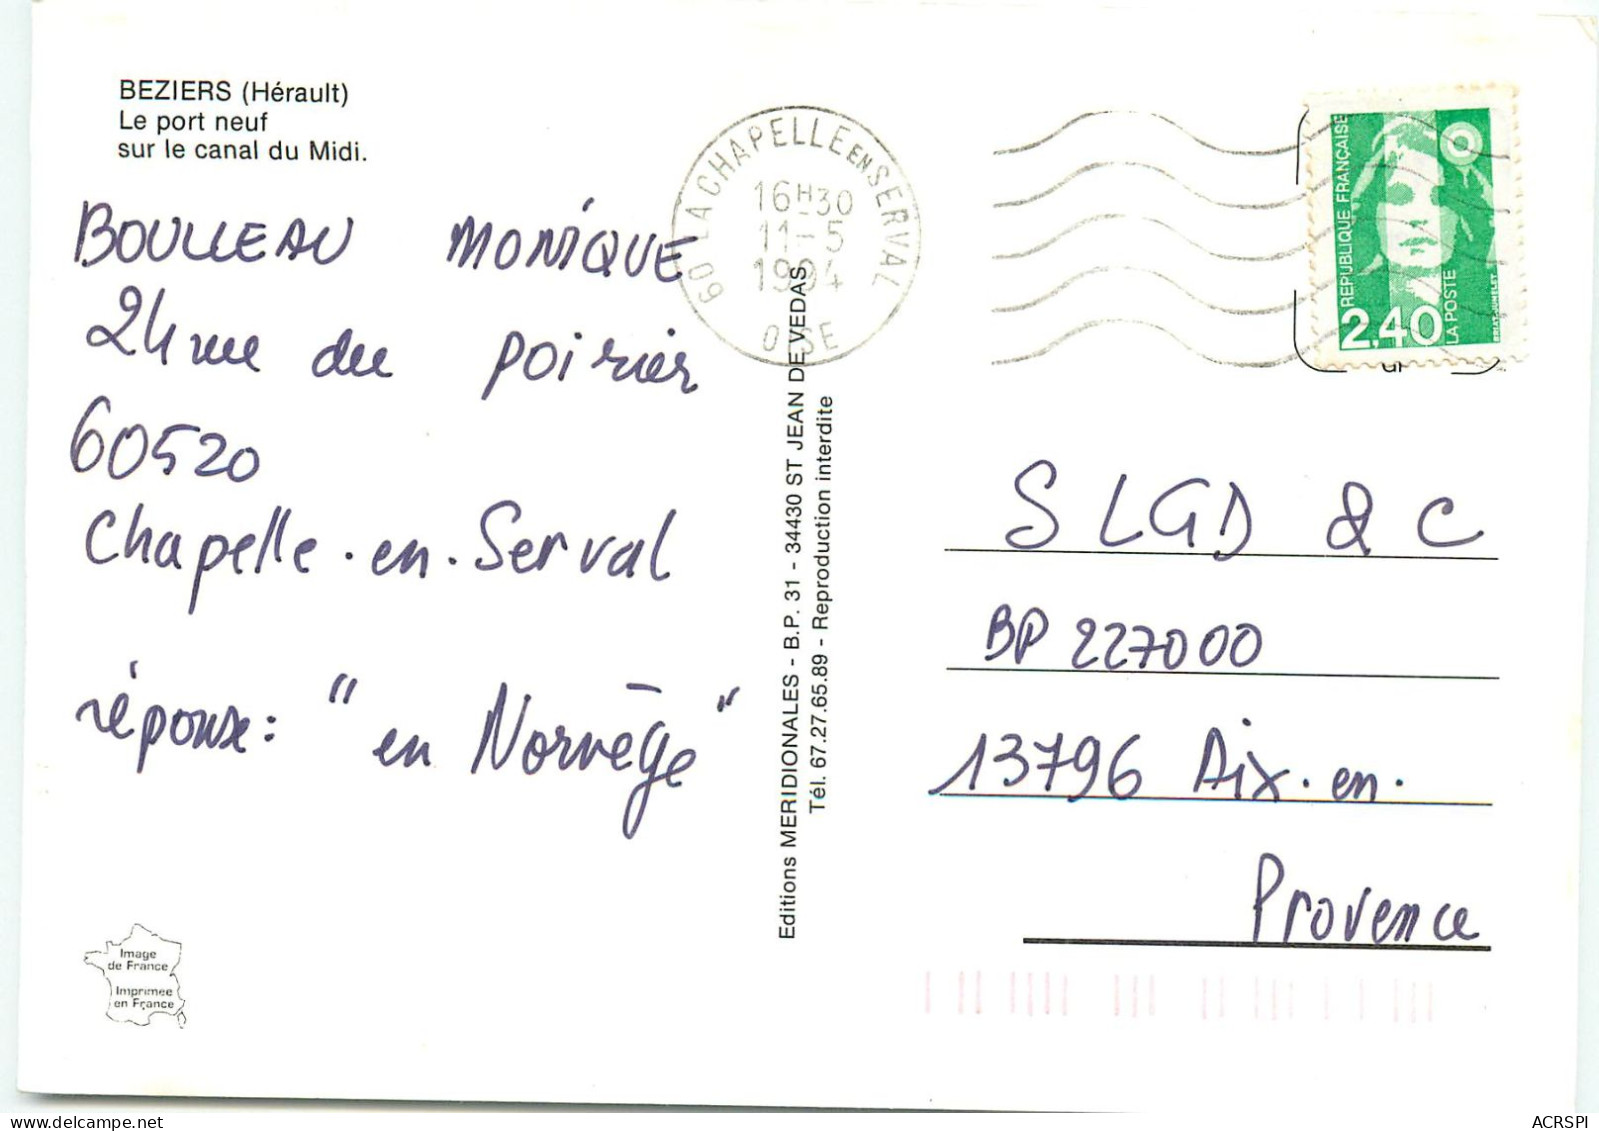 BEZIERS (Hérault)
Le port neuf
sur le canal du Midi.
BOULLEAU MONIQUE
24 rue du poirier
60520
Chapelle.en.Serval
réponse: "en Norvège"
Image
de France
Imprimée
en France
Editions MERIDIONALES - B.P. 31 - 34430 ST JEAN DE VEDAS
Tél. 67.27.65.89 - Reproduction interdite
60 LA CHAPELLE EN SERVAL
16H30
11-5
1994
OISE
REPUBLIQUE FRANÇAISE
2,40
LA POSTE
SLGD & C
BP 227000
13796 Aix.en.
Provence
ACRSPI